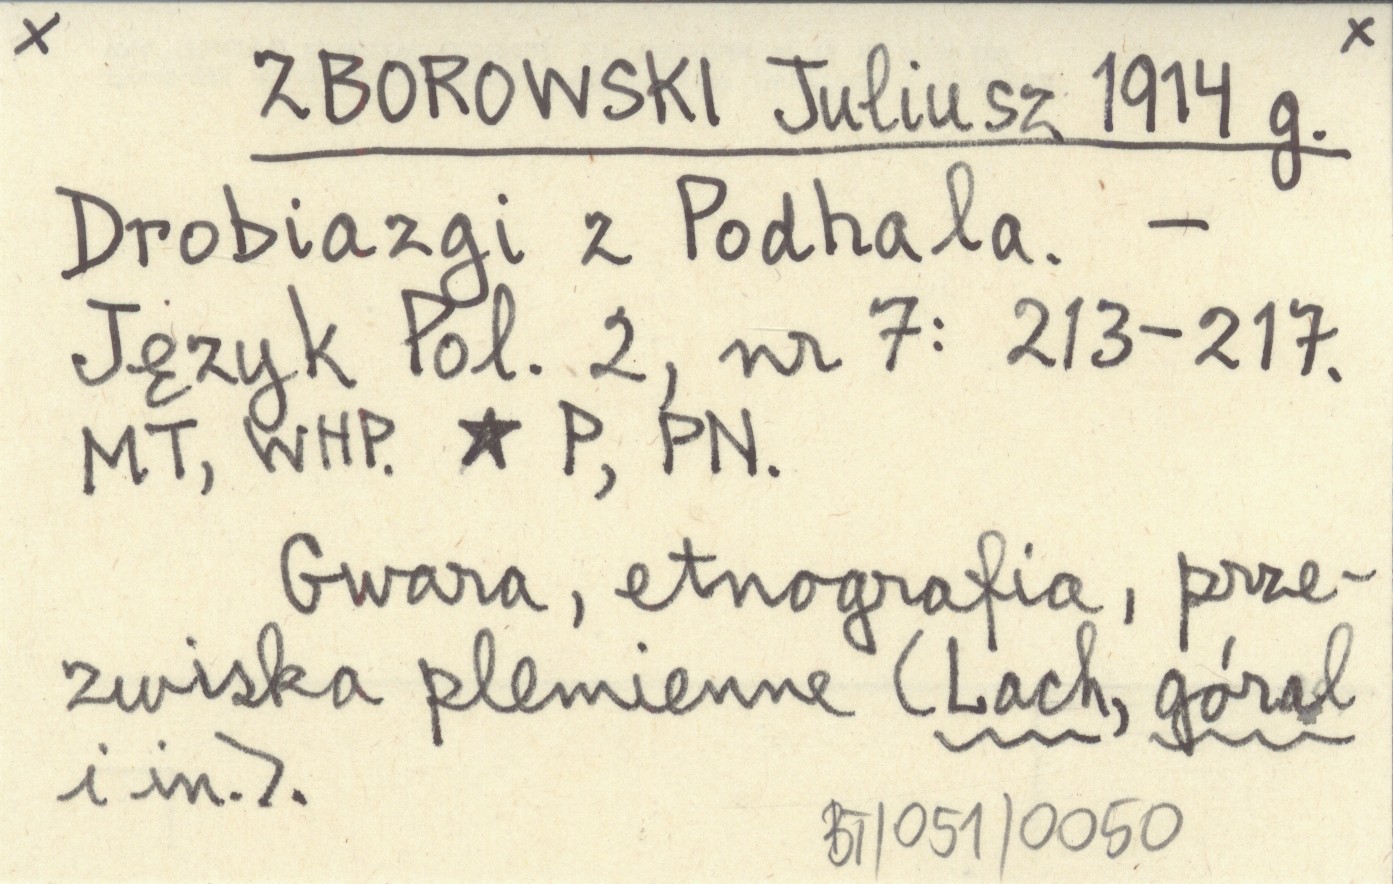 x x
ZBOROWSKI Juliusz 1914 g.
Drobiazgi z Podhala. –
Język Pol. 2, nr 7: 213–217.
MT, WHP. ★ P, PN.
Gwara, etnografia, prze-
zwiska plemienne (Lach, góral
i in.).
BT/051/0050